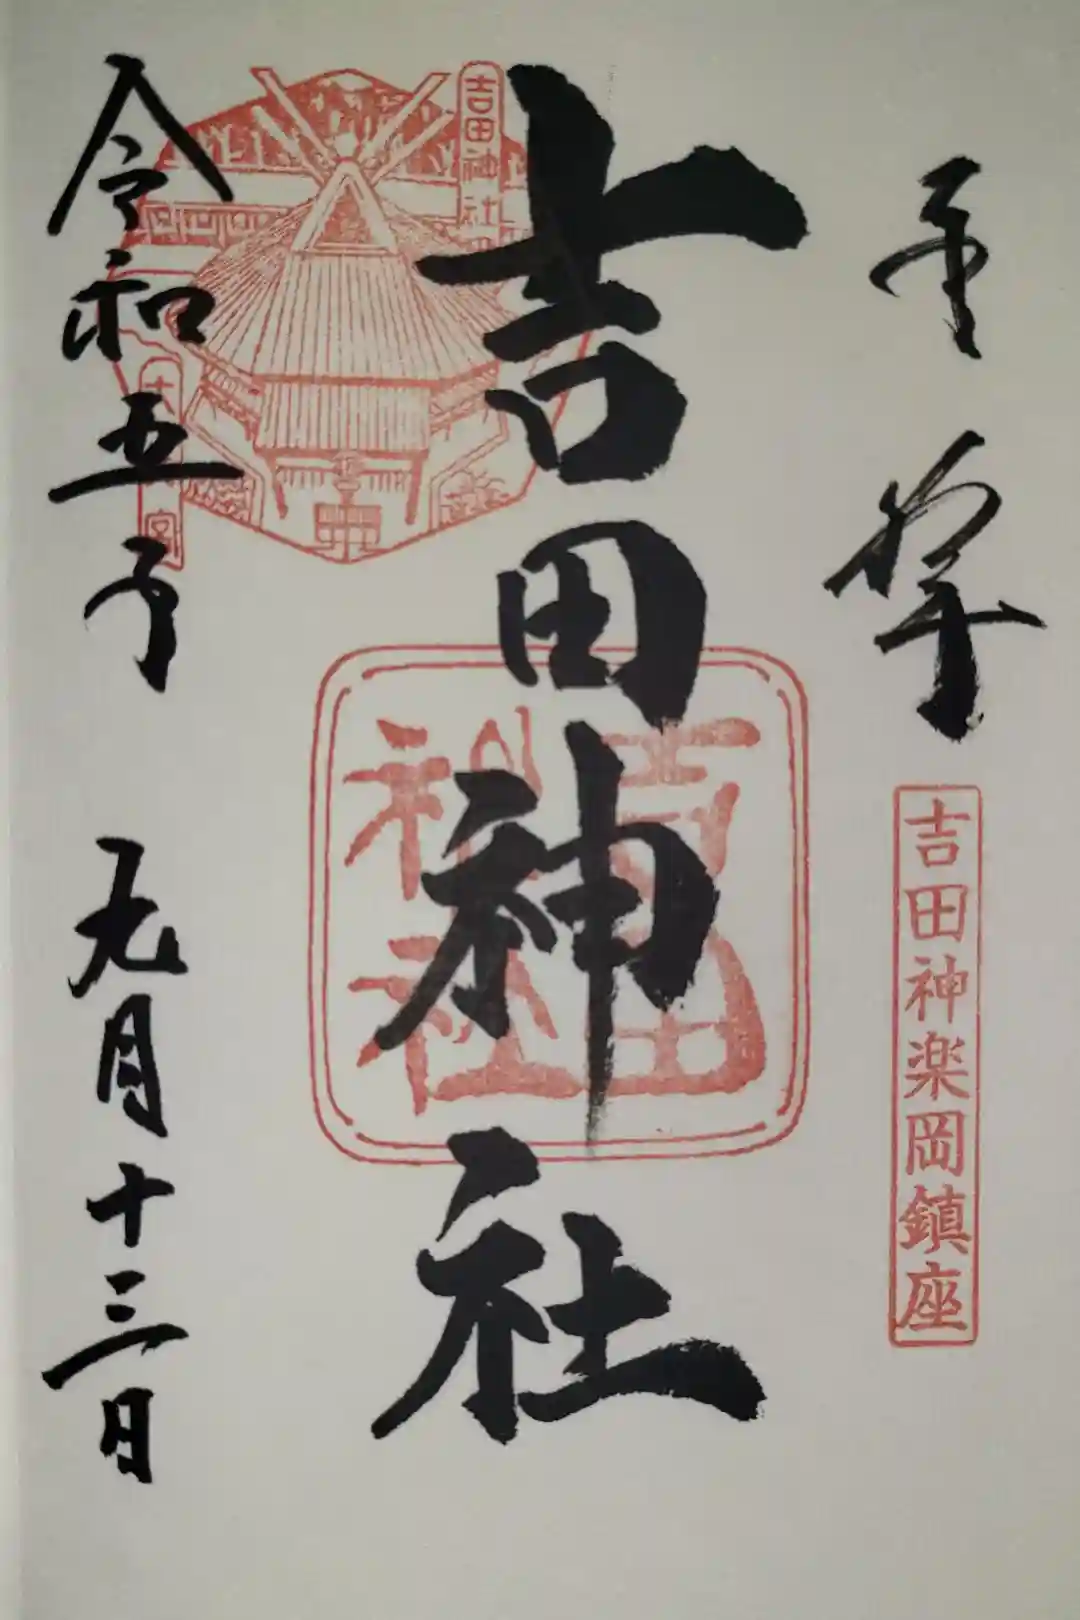 奉拝
吉田神楽岡鎮座
吉田神社
吉田神社
吉田神社
令和五年 九月十三日